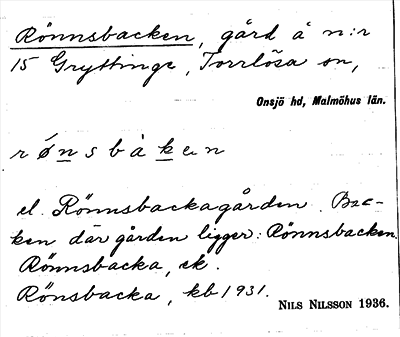 Rönnsbacken, gård å n:r
15 Gryttinge, Torrlösa sn,
Onsjö hd, Malmöhus län.
r ǿ n s b à k e n
el. Rönnsbackagården. Bac-
ken där gården ligger: Rönnsbacken.
Rönnsbacka, ek.
Rönsbacka, kb 1931.
NILS NILSSON 1936.